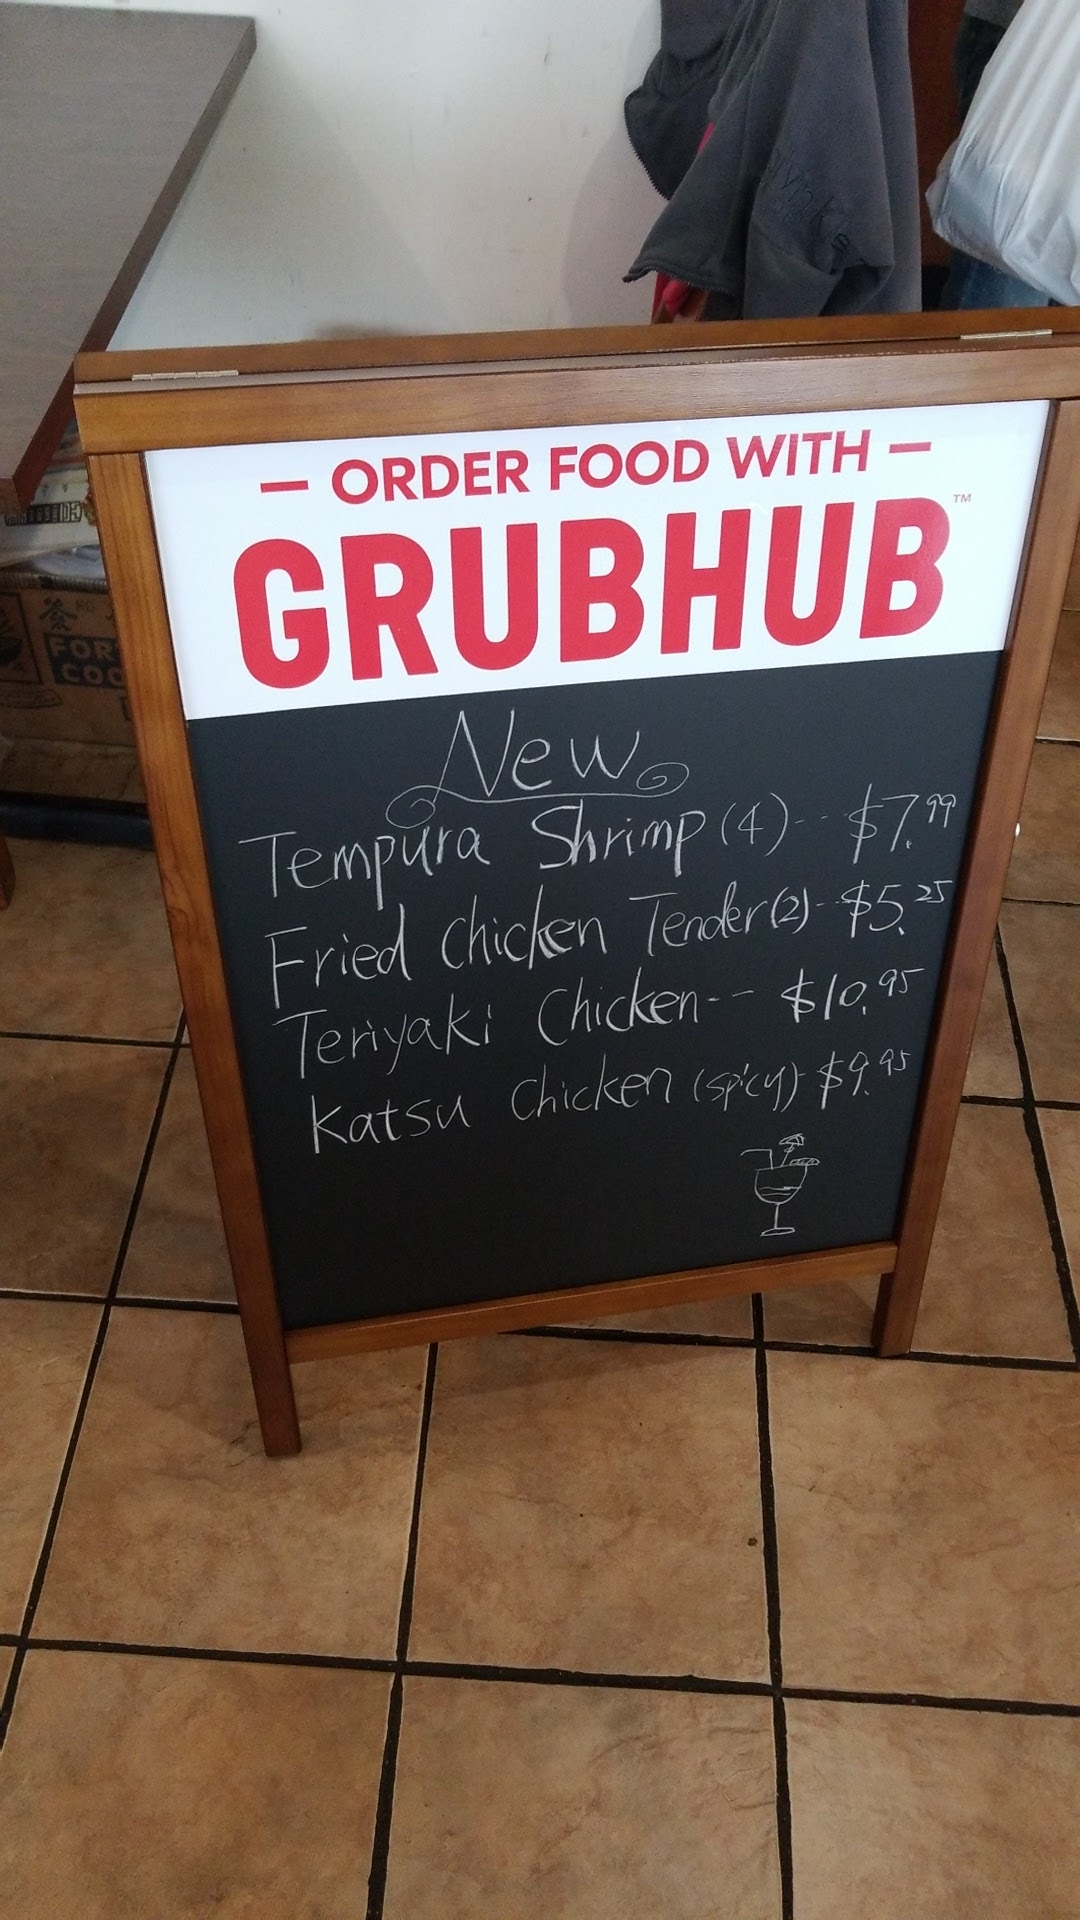 — ORDER FOOD WITH —
GRUBHUB™
New
Tempura Shrimp (4) -- $7.99
Fried Chicken Tender (2) -- $5.25
Teriyaki Chicken -- $10.95
Katsu Chicken (spicy) - $9.95
FOR
COO